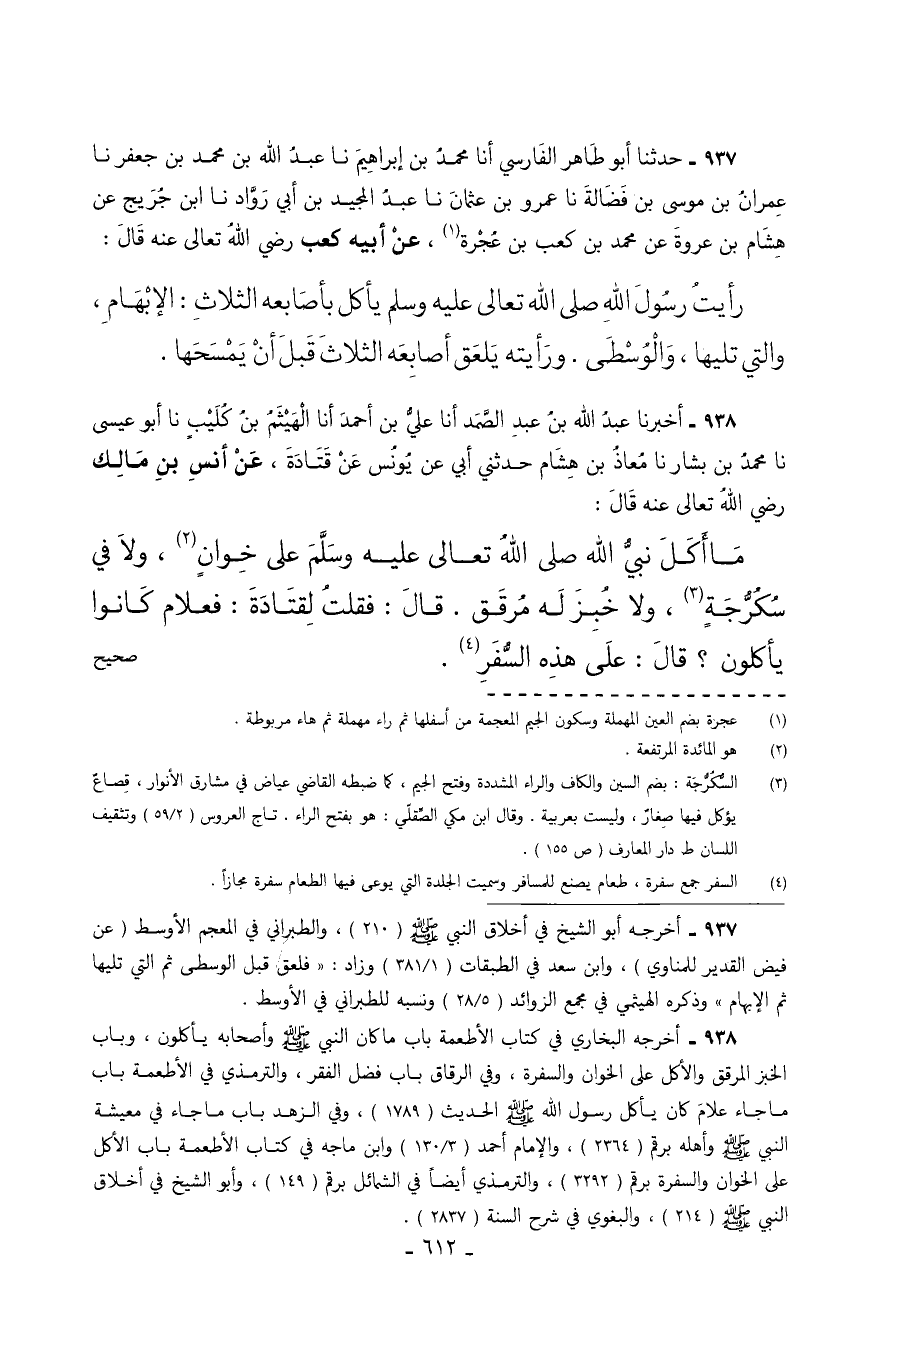 ٩٣٧ ـ حدثنا أبو طَاهر الفَارسي أنا محمدُ بن إبراهيمَ نا عبدُ الله بن محمد بن جعفر نا
عِمرانُ بن موسى بن فَضَالةَ نا عمرو بن عثمانَ نا عبدُ المجيد بن أبي رَوَّاد نا ابن جُريج عن
هِشَام بن عروةَ عن محمد بن كعب بن عُجْرة(١) ، عنْ أبيه كعب رضي اللهُ تعالى عنه قَالَ :
رأيتُ رسُولَ اللهِ صلى الله تعالى عليه وسلم يأكل بأصَابعه الثلاثِ : الإبْهَامِ ،
والتي تليها ، وَالْوُسْطَى . ورَأيته يَلعَق أصابعَه الثلاثَ قَبلَ أنْ يَمْسَحَها .
٩٣٨ ـ أخبرنا عبدُ الله بنُ عبدِ الصَّمد أنا عليُّ بن أحمدَ أنا الْهَيْثَمُ بنُ كُلَيْبٍ نا أبو عيسى
نا محمدُ بن بشار نا مُعاذُ بن هِشَام حدثني أبي عن يُونُس عَنْ قَتَادَةَ ، عَنْ أنسِ بنِ مَالِك
رضي اللهُ تعالى عنه قَالَ :
مَا أَكَلَ نبيُّ الله صلى اللهُ تعالى عليه وسَلَّمَ على خِوانٍ(٢) ، ولاَ في
سُكُرُّجَةٍ(٣) ، ولا خُبِزَ لَه مُرقَق . قالَ : فقلتُ لِقتَادَةَ : فعلام كَانوا
يأكلون ؟ قالَ : علَى هذِه السُّفَرِ(٤) . صحيح
(١) عجرة بضم العين المهملة وسكون الجيم المعجمة من أسفلها ثم راء مهملة ثم هاء مربوطة .
(٢) هو المائدة المرتفعة .
(٣) السُّكُرُّجَة : بضم السين والكاف والراء المشددة وفتح الجيم ، كما ضبطه القاضي عياض في مشارق الأنوار ، قِصاعٌ
يؤكل فيها صِغارٌ ، وليست بعربية . وقال ابن مكي الصِّقليّ : هو بفتح الراء . تاج العروس ( ٥٩/٢ ) وتثقيف
اللسان ط دار المعارف ( ص ١٥٥ ) .
(٤) السفر جمع سفرة ، طعام يصنع للمسافر وسميت الجلدة التي يوعى فيها الطعام سفرة مجازاً .
٩٣٧ ـ أخرجه أبو الشيخ في أخلاق النبي ﷺ ( ٢١٠ ) ، والطبراني في المعجم الأوسط ( عن
فيض القدير للمناوي ) ، وابن سعد في الطبقات ( ٣٨١/١ ) وزاد : « فلعق قبل الوسطى ثم التي تليها
ثم الإبهام » وذكره الهيثمي في مجمع الزوائد ( ٢٨/٥ ) ونسبه للطبراني في الأوسط .
٩٣٨ ـ أخرجه البخاري في كتاب الأطعمة باب ماكان النبي ﷺ وأصحابه يأكلون ، وباب
الخبز المرقق والأكل على الخوان والسفرة ، وفي الرقاق باب فضل الفقر ، والترمذي في الأطعمة باب
ماجاء علامَ كان يأكل رسول الله ﷺ الحديث ( ١٧٨٩ ) ، وفي الزهد باب ماجاء في معيشة
النبي ﷺ وأهله برقم ( ٢٣٦٤ ) ، والإمام أحمد ( ١٣٠/٣ ) وابن ماجه في كتاب الأطعمة باب الأكل
على الخوان والسفرة برقم ( ٣٢٩٢ ) ، والترمذي أيضاً في الشمائل برقم ( ١٤٩ ) ، وأبو الشيخ في أخلاق
النبي ﷺ ( ٢١٤ ) ، والبغوي في شرح السنة ( ٢٨٣٧ ) .
ـ ٦١٢ ـ